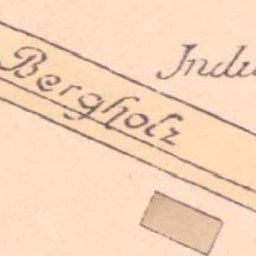 Bergholz
Indu